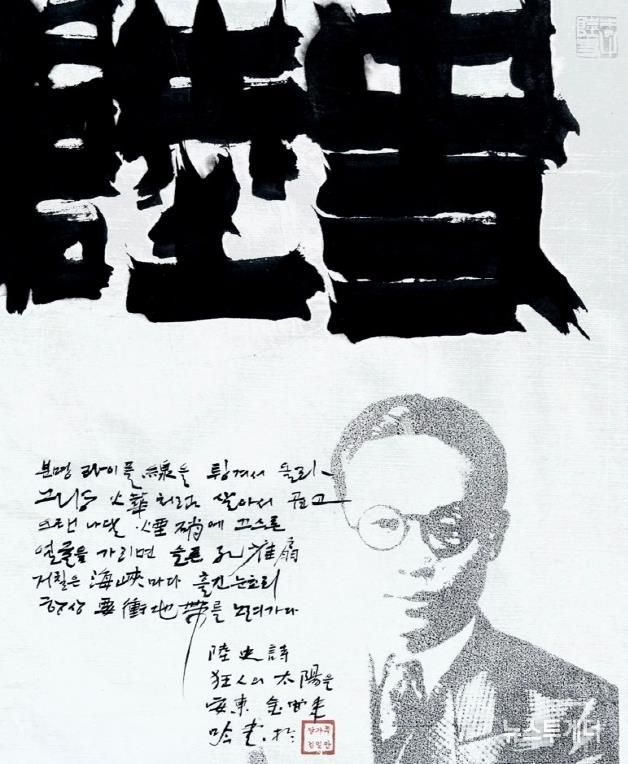 분명 라이플 線을 튕겨서 올라
그냥 火華처럼 살아서 곱고
오랜 나달 煙硝에 끄스른
얼굴을 가리면 슬픈 孔雀扇
거칠은 海峽마다 흘긴 눈초리
항상 要衝地帶를 노려가다
陸史詩
狂人의 太陽을
安東 金
뉴스투게더